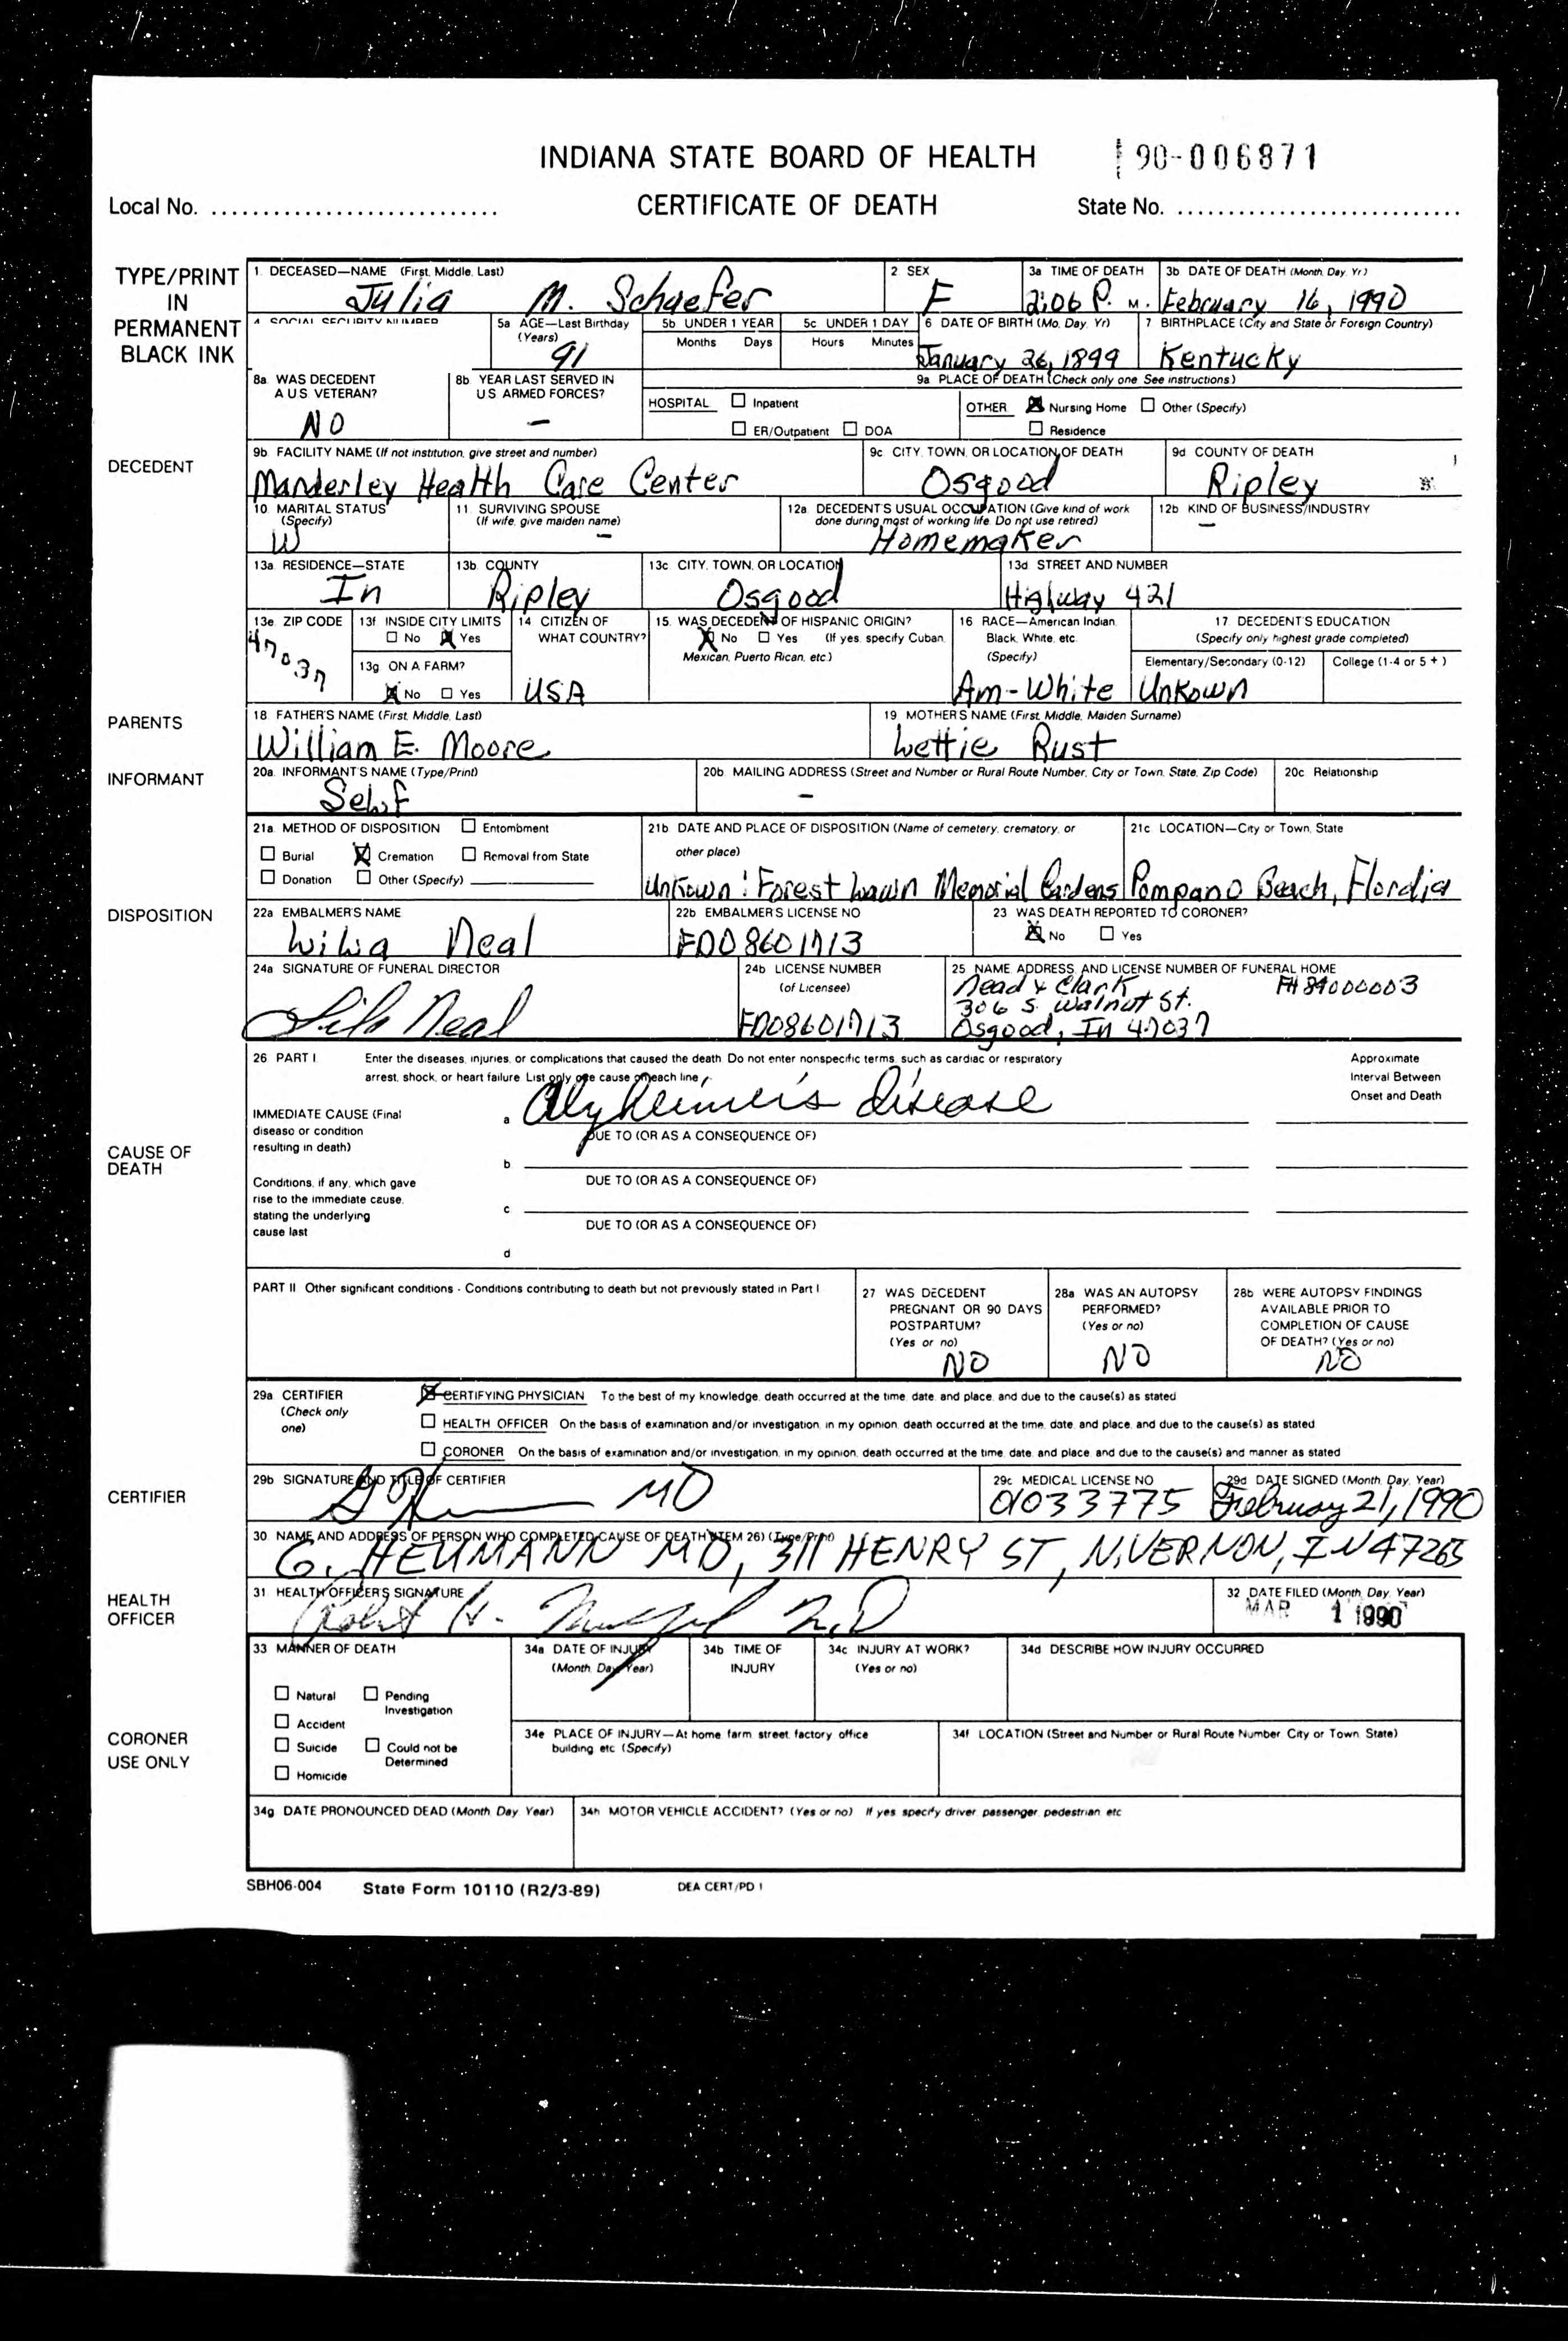 INDIANA STATE BOARD OF HEALTH
90-006871
Local No.
CERTIFICATE OF DEATH
State No.
TYPE/PRINT
IN
PERMANENT
BLACK INK
1. DECEASED—NAME (First, Middle, Last)
Julia M. Schaefer
2 SEX
F
3a TIME OF DEATH
2:06 P. M.
3b. DATE OF DEATH (Month, Day, Yr.)
February 16, 1990
4. SOCIAL SECURITY NUMBER
5a AGE—Last Birthday
(Years)
91
5b UNDER 1 YEAR
Months Days
5c UNDER 1 DAY
Hours Minutes
6 DATE OF BIRTH (Mo, Day, Yr)
January 26, 1899
7 BIRTHPLACE (City and State or Foreign Country)
Kentucky
8a. WAS DECEDENT
A U.S. VETERAN?
NO
8b. YEAR LAST SERVED IN
U.S. ARMED FORCES?
—
9a. PLACE OF DEATH (Check only one See instructions)
HOSPITAL Inpatient
ER/Outpatient DOA
OTHER Nursing Home Other (Specify)
Residence
DECEDENT
9b. FACILITY NAME (If not institution, give street and number)
Manderley Health Care Center
9c CITY, TOWN, OR LOCATION OF DEATH
Osgood
9d COUNTY OF DEATH
Ripley
10. MARITAL STATUS
(Specify)
W
11. SURVIVING SPOUSE
(If wife, give maiden name)
—
12a. DECEDENT'S USUAL OCCUPATION (Give kind of work
done during most of working life. Do not use retired)
Homemaker
12b KIND OF BUSINESS/INDUSTRY
—
13a. RESIDENCE—STATE
In
13b. COUNTY
Ripley
13c. CITY, TOWN, OR LOCATION
Osgood
13d STREET AND NUMBER
Highway 421
13e. ZIP CODE
47037
13f. INSIDE CITY LIMITS
No Yes
13g ON A FARM?
No Yes
14 CITIZEN OF
WHAT COUNTRY?
USA
15. WAS DECEDENT OF HISPANIC ORIGIN?
No Yes (If yes, specify Cuban,
Mexican, Puerto Rican, etc.)
16 RACE—American Indian,
Black, White, etc.
(Specify)
Am-White
17 DECEDENT'S EDUCATION
(Specify only highest grade completed)
Elementary/Secondary (0-12) College (1-4 or 5+)
Unkown
PARENTS
18 FATHER'S NAME (First, Middle, Last)
William E. Moore
19 MOTHER'S NAME (First, Middle, Maiden Surname)
Lettie Rust
INFORMANT
20a. INFORMANT'S NAME (Type/Print)
Self
20b. MAILING ADDRESS (Street and Number or Rural Route Number, City or Town, State, Zip Code)
—
20c Relationship
21a. METHOD OF DISPOSITION Entombment
Burial Cremation Removal from State
Donation Other (Specify)
21b DATE AND PLACE OF DISPOSITION (Name of cemetery, crematory, or
other place)
Unkown : Forest Lawn Memorial Gardens
21c LOCATION—City or Town, State
Pompano Beach, Flordia
DISPOSITION
22a EMBALMER'S NAME
Lila Neal
22b EMBALMER'S LICENSE NO
FD08601713
23 WAS DEATH REPORTED TO CORONER?
No Yes
24a SIGNATURE OF FUNERAL DIRECTOR
Lila Neal
24b LICENSE NUMBER
(of Licensee)
FD08601713
25 NAME, ADDRESS, AND LICENSE NUMBER OF FUNERAL HOME
Neal & Clark FH 89000003
306 S. Walnut St.
Osgood, In 47037
CAUSE OF
DEATH
26 PART I. Enter the diseases, injuries, or complications that caused the death. Do not enter nonspecific terms, such as cardiac or respiratory
arrest, shock, or heart failure. List only one cause on each line.
Approximate
Interval Between
Onset and Death
IMMEDIATE CAUSE (Final
disease or condition
resulting in death)
a Alzheimer's disease
DUE TO (OR AS A CONSEQUENCE OF)
b
Conditions, if any, which gave
rise to the immediate cause,
stating the underlying
cause last
DUE TO (OR AS A CONSEQUENCE OF)
c
DUE TO (OR AS A CONSEQUENCE OF)
d
PART II Other significant conditions - Conditions contributing to death but not previously stated in Part I.
27 WAS DECEDENT
PREGNANT OR 90 DAYS
POSTPARTUM?
(Yes or no)
NO
28a WAS AN AUTOPSY
PERFORMED?
(Yes or no)
NO
28b WERE AUTOPSY FINDINGS
AVAILABLE PRIOR TO
COMPLETION OF CAUSE
OF DEATH? (Yes or no)
NO
CERTIFIER
29a CERTIFIER
(Check only
one)
CERTIFYING PHYSICIAN To the best of my knowledge, death occurred at the time, date, and place, and due to the cause(s) as stated
HEALTH OFFICER On the basis of examination and/or investigation, in my opinion, death occurred at the time, date, and place, and due to the cause(s) as stated
CORONER On the basis of examination and/or investigation, in my opinion, death occurred at the time, date, and place, and due to the cause(s) and manner as stated
29b SIGNATURE AND TITLE OF CERTIFIER
MD
29c MEDICAL LICENSE NO
01033775
29d DATE SIGNED (Month, Day, Year)
February 21, 1990
30 NAME AND ADDRESS OF PERSON WHO COMPLETED CAUSE OF DEATH (ITEM 26) (Type/Print)
G. HEUMANN MD, 311 HENRY ST, N.VERNON, IN 47265
HEALTH
OFFICER
31 HEALTH OFFICER'S SIGNATURE
Robert H. M.D
32 DATE FILED (Month, Day, Year)
MAR 1 1990
CORONER
USE ONLY
33 MANNER OF DEATH
Natural Pending
Investigation
Accident
Suicide Could not be
Determined
Homicide
34a DATE OF INJURY
(Month, Day, Year)
34b TIME OF
INJURY
34c INJURY AT WORK?
(Yes or no)
34d DESCRIBE HOW INJURY OCCURRED
34e PLACE OF INJURY—At home, farm, street, factory, office
building, etc (Specify)
34f LOCATION (Street and Number or Rural Route Number, City or Town, State)
34g DATE PRONOUNCED DEAD (Month, Day, Year)
34h MOTOR VEHICLE ACCIDENT? (Yes or no) If yes, specify driver, passenger, pedestrian, etc
SBH06-004 State Form 10110 (R2/3-89) DEA CERT/PD 1